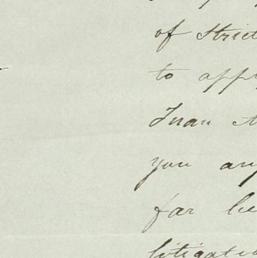 of Strict
to app
Juan
you any
far be
litigation